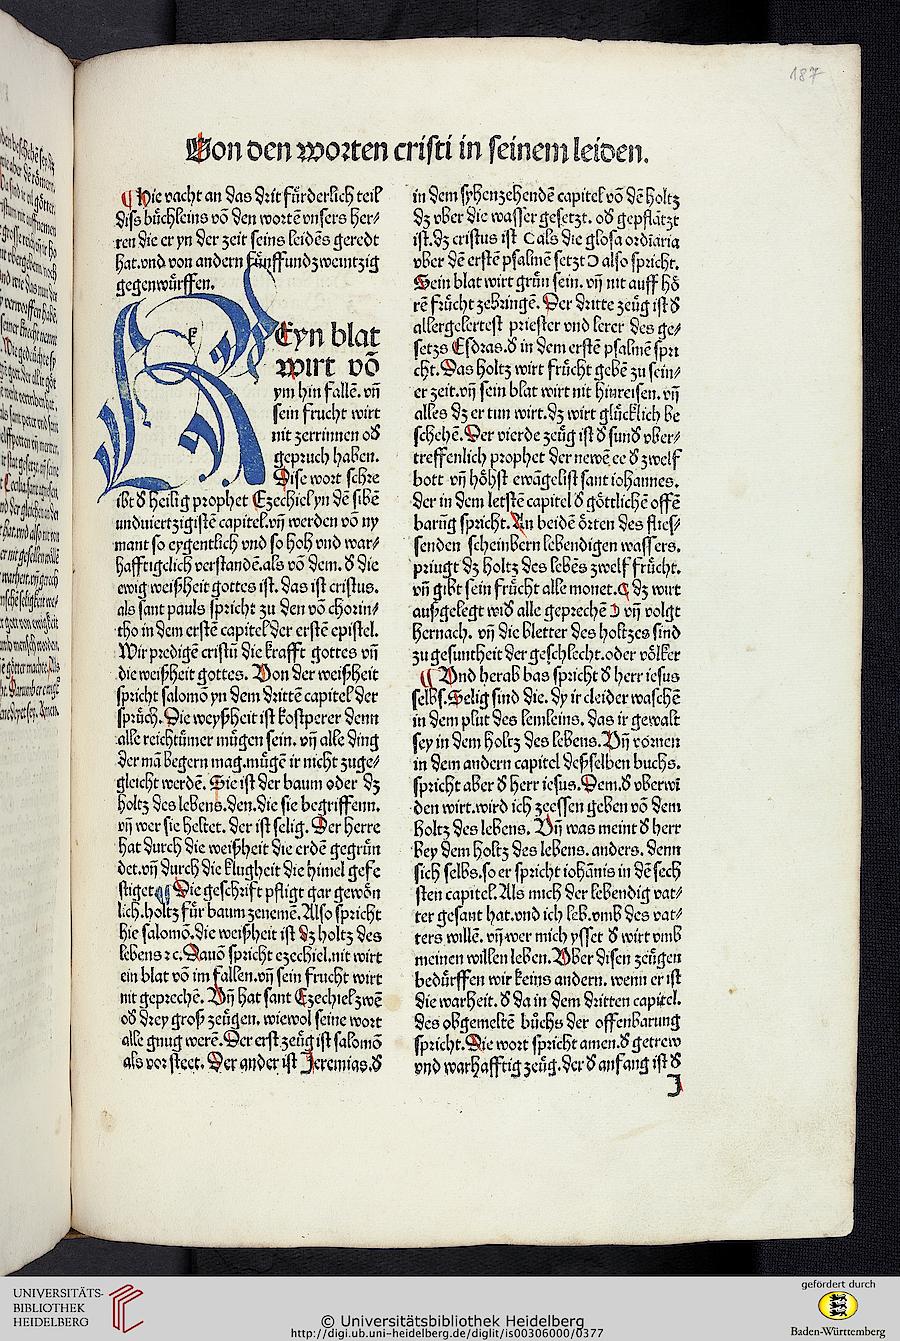 187
Von den worten cristi in seinem leiden.
¶ Hie vacht an das drit fürderlich teil
diss büchleins vō den wortē vnsers her⸗
ren die er yn der zeit seins leidēs geredt
hat. vnd von andern fünffundzweintzig
gegenwürffen.
Eyn blat
wirt vō
ym hin fallē. vn̄
sein frucht wirt
nit zerrinnen od̄
gepruch haben.
Dise wort schre
ibt d̄ heilig prophet Ezechiel yn dē sibē
undviertzigistē capitel. vn̄ werden vō ny
mant so eygentlich vnd so hoh vnd war⸗
hafftigclich verstandē. als vō dem. d̄ die
ewig weißheit gottes ist. das ist cristus.
als sant pauls spricht zu den vō chorin⸗
tho in dem erstē capitel der erstē epistel.
Wir predigē cristū die krafft gottes vn̄
die weißheit gottes. Von der weißheit
spricht salomō yn dem drittē capitel der
sprüch. Die weyßheit ist kostperer denn
alle reichtümer mügen sein. vn̄ alle ding
der mā begern mag. mügē ir nicht zuge⸗
gleicht werdē. Sie ist der baum oder dz
holtz des lebens. den. die sie begriffenn.
vn̄ wer sie heltet. der ist selig. Der herre
hat durch die weißheit die erdē gegrün
det. vn̄ durch die klugheit die himel gefe
stiget. ¶ Die geschrift pfligt gar gewōn
lich. holtz für baum zenemē. Also spricht
hie salomō. die weißheit ist dz holtz des
lebens ⁊c. Dauō spricht ezechiel. nit wirt
ein blat vō im fallen. vn̄ sein frucht wirt
nit geprechē. Vn̄ hat sant Ezechiel zwē
od̄ drey groß zeügen. wiewol seine wort
alle gnug werē. Der erst zeüg ist salomō
als vor steet. Der ander ist Jeremias. d̄
in dem sybenzehendē capitel vō dē holtz
dz vber die wasser gesetzt. od̄ gepflātzt
ist. dz cristus ist C als die glosa ordiaria
vber dē erstē psalmē setzt Ɔ also spricht.
Sein blat wirt grün sein. vn̄ nit auff hō
rē frücht zebringē. Der dritte zeüg ist d̄
allergelertest priester vnd lerer des ge⸗
setzs Esdras. d̄ in dem erstē psalmē spri
cht. Das holtz wirt frücht gebē zu sein⸗
er zeit. vn̄ sein blat wirt nit hinreisen. vn̄
alles dz er tun wirt. dz wirt glücklich be
schehē. Der vierde zeüg ist d̄ sund̄ vber⸗
treffenlich prophet der newē ee d̄ zwelf
bott vn̄ höhst ewāgelist sant iohannes.
der in dem letstē capitel d̄ göttlichē offē
barūg spricht. An beidē örten des flies⸗
senden scheinbern lebendigen wassers.
priugt dz holtz des lebēs zwelf frücht.
vn̄ gibt sein frücht alle monet. C dz wirt
außgelegt wid̄ alle geprechē Ɔ vn̄ volgt
hernach. vn̄ die bletter des holtzes sind
zu gesuntheit der geschlecht. oder völker
¶ Vnd herab bas spricht d̄ herr iesus
selbs. Selig sind die. dy ir cleider waschē
in dem plut des lemleins. das ir gewalt
sey in dem holtz des lebens. Vn̄ vornen
in dem andern capitel deßselben buchs.
spricht aber d̄ herr iesus. Dem. d̄ vberwi
den wirt. wird ich zeessen geben vō dem
holtz des lebens. Vn̄ was meint d̄ herr
bey dem holtz des lebens. anders. denn
sich selbs. so er spricht iohānis in dē sech
sten capitel. Als mich der lebendig vat⸗
ter gesant hat. vnd ich leb. vmb des vat⸗
ters willē. vn̄ wer mich ysset d̄ wirt vmb
meinen willen leben. Vber disen zeügen
bedürffen wir keins andern. wenn er ist
die warheit. d̄ da in dem dritten capitel.
des obgemeltē büchs der offenbarung
spricht. Die wort spricht amen. d̄ getrew
vnd warhafftig zeüg. der d̄ anfang ist d̄
J
UNIVERSITÄTS-
BIBLIOTHEK
HEIDELBERG
© Universitätsbibliothek Heidelberg
http://digi.ub.uni-heidelberg.de/diglit/is00306000/0377
gefördert durch
Baden-Württemberg